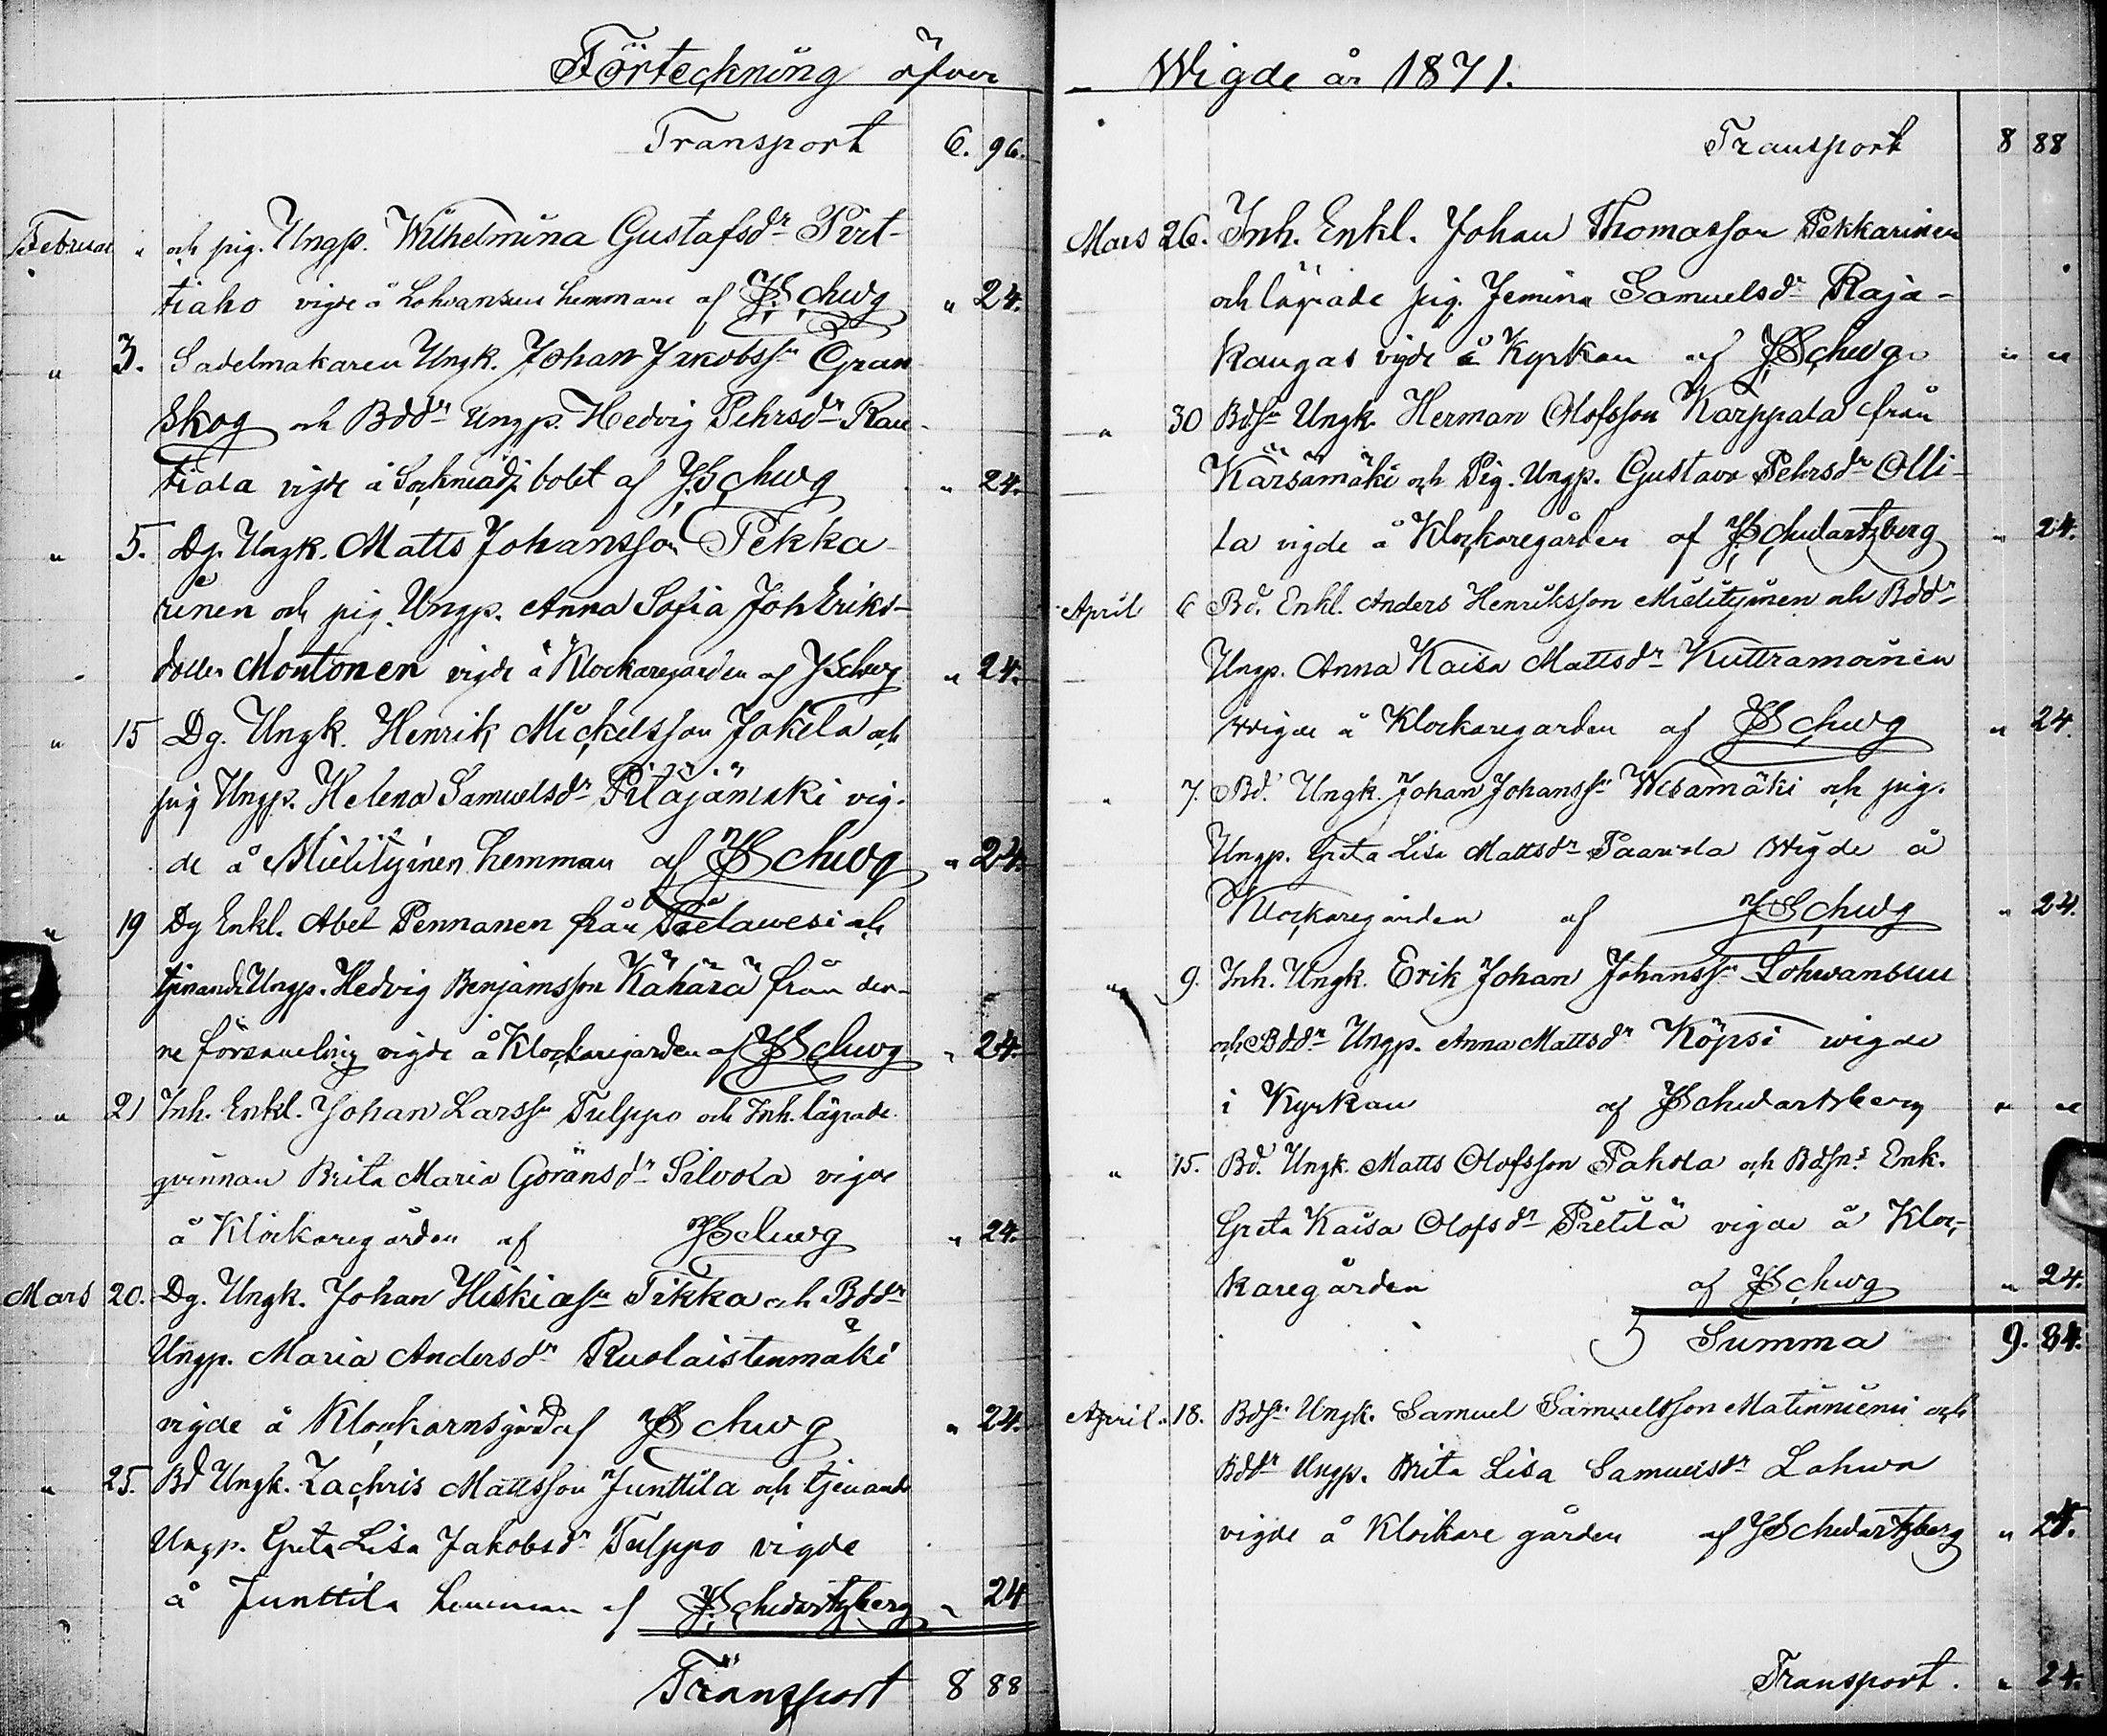 Förteckning öfver
Transport 6. 96.
Februar " och pig. Ungp. Wilhelmina Gustafsdr Pirt-
tiaho vigde å Lohvansuu hemman af JSchwg " 24.
" 3. Sadelmakaren Ungk. Johan Jakobssn Gran
skog och Bddr Ungp. Hedvig Pehrsdr Rau-
tiala vigde å bolet af JSchwg " 24.
" 5. Dg. Ungk. Matts Johansson Pekka-
rinen och pig. Ungp. Anna Sofia Joh Eriks-
dotter Montonen vigde å Klockaregården af JSchwg " 24.
" 15 Dg. Ungk. Henrik Mickelsson Jokela och
pig Ungp. Helena Samuelsdr Pitäjämäki vig-
de å Mielityinen hemman af JSchwg " 24.
" 19 Dg Enkl. Abel Pennanen från Pielawesi och
tjenande Ungp. Hedvig Benjamsson Kähärä från den-
ne församling vigde å Klockaregården af JSchwg " 24.
" 21 Inh. Enkl. Johan Larssn Tulppo och Inh. lägrade
qvinnan Brita Maria Göransdr Silvola vigde
å Klockaregården af JSchwg " 24.
Mars 20. Dg. Ungk. Johan Hiskiassn Tikka och Bddr
Ungp. Maria Andersdr Ruolaistenmäki
vigde å Klockarnsgård af JSchwg " 24.
" 25. Bd Ungk. Zachris Mattsson Junttila och tjenande
Ungp. Greta Lisa Jakobsdr Tulppo vigde
å Junttila hemman af JSchwartzberg " 24
Transport 8 88
Wigde år 1871.
Transport 8 88
Mars 26. Inh. Enkl. Johan Thomasson Pekkarinen
och lägrade pig. Jemina Samuelsdr Raja-
kangas vigde å Kyrkan af JSchwg " "
" 30 Bdsn Ungk. Herman Olofsson Karppala från
Kärsämäki och Pig. Ungp. Gustava Pehrsdr Olli-
la vigde å Klockaregården af JSchwartzberg " 24.
April 6 Bd. Enkl. Anders Henriksson Mielityinen och Bddr
Ungp. Anna Kaisa Mattsdr Kuttramoinen
wigde å Klockaregården af JSchwg " 24.
" 7. Bd. Ungk. Johan Johanssn Wesamäki och pig.
Ungp. Greta Lisa Mattsdr Paavola Wigde å
Klockaregården af JSchwg " 24.
" 9. Inh. Ungk. Erik Johan Johanssn Lohwansuu
och Bddr Ungp. Anna Mattsdr Köpsi wigde
i Kyrkan af JSchwartzberg " "
" 15. Bd. Ungk. Matts Olofsson Pakola och Bdsns Enk.
Greta Kaisa Olofsdr Pietilä vigde å Kloc-
karegården af JSchwg " 24.
Summa 9. 84.
April 18. Bdsn Ungk. Samuel Samuelsson Matinniemi och
Bddr Ungp. Brita Lisa Samuelsdr Lahwa
vigde å Klockare gården af JSchwartzberg " 24.
Transport. " 24.